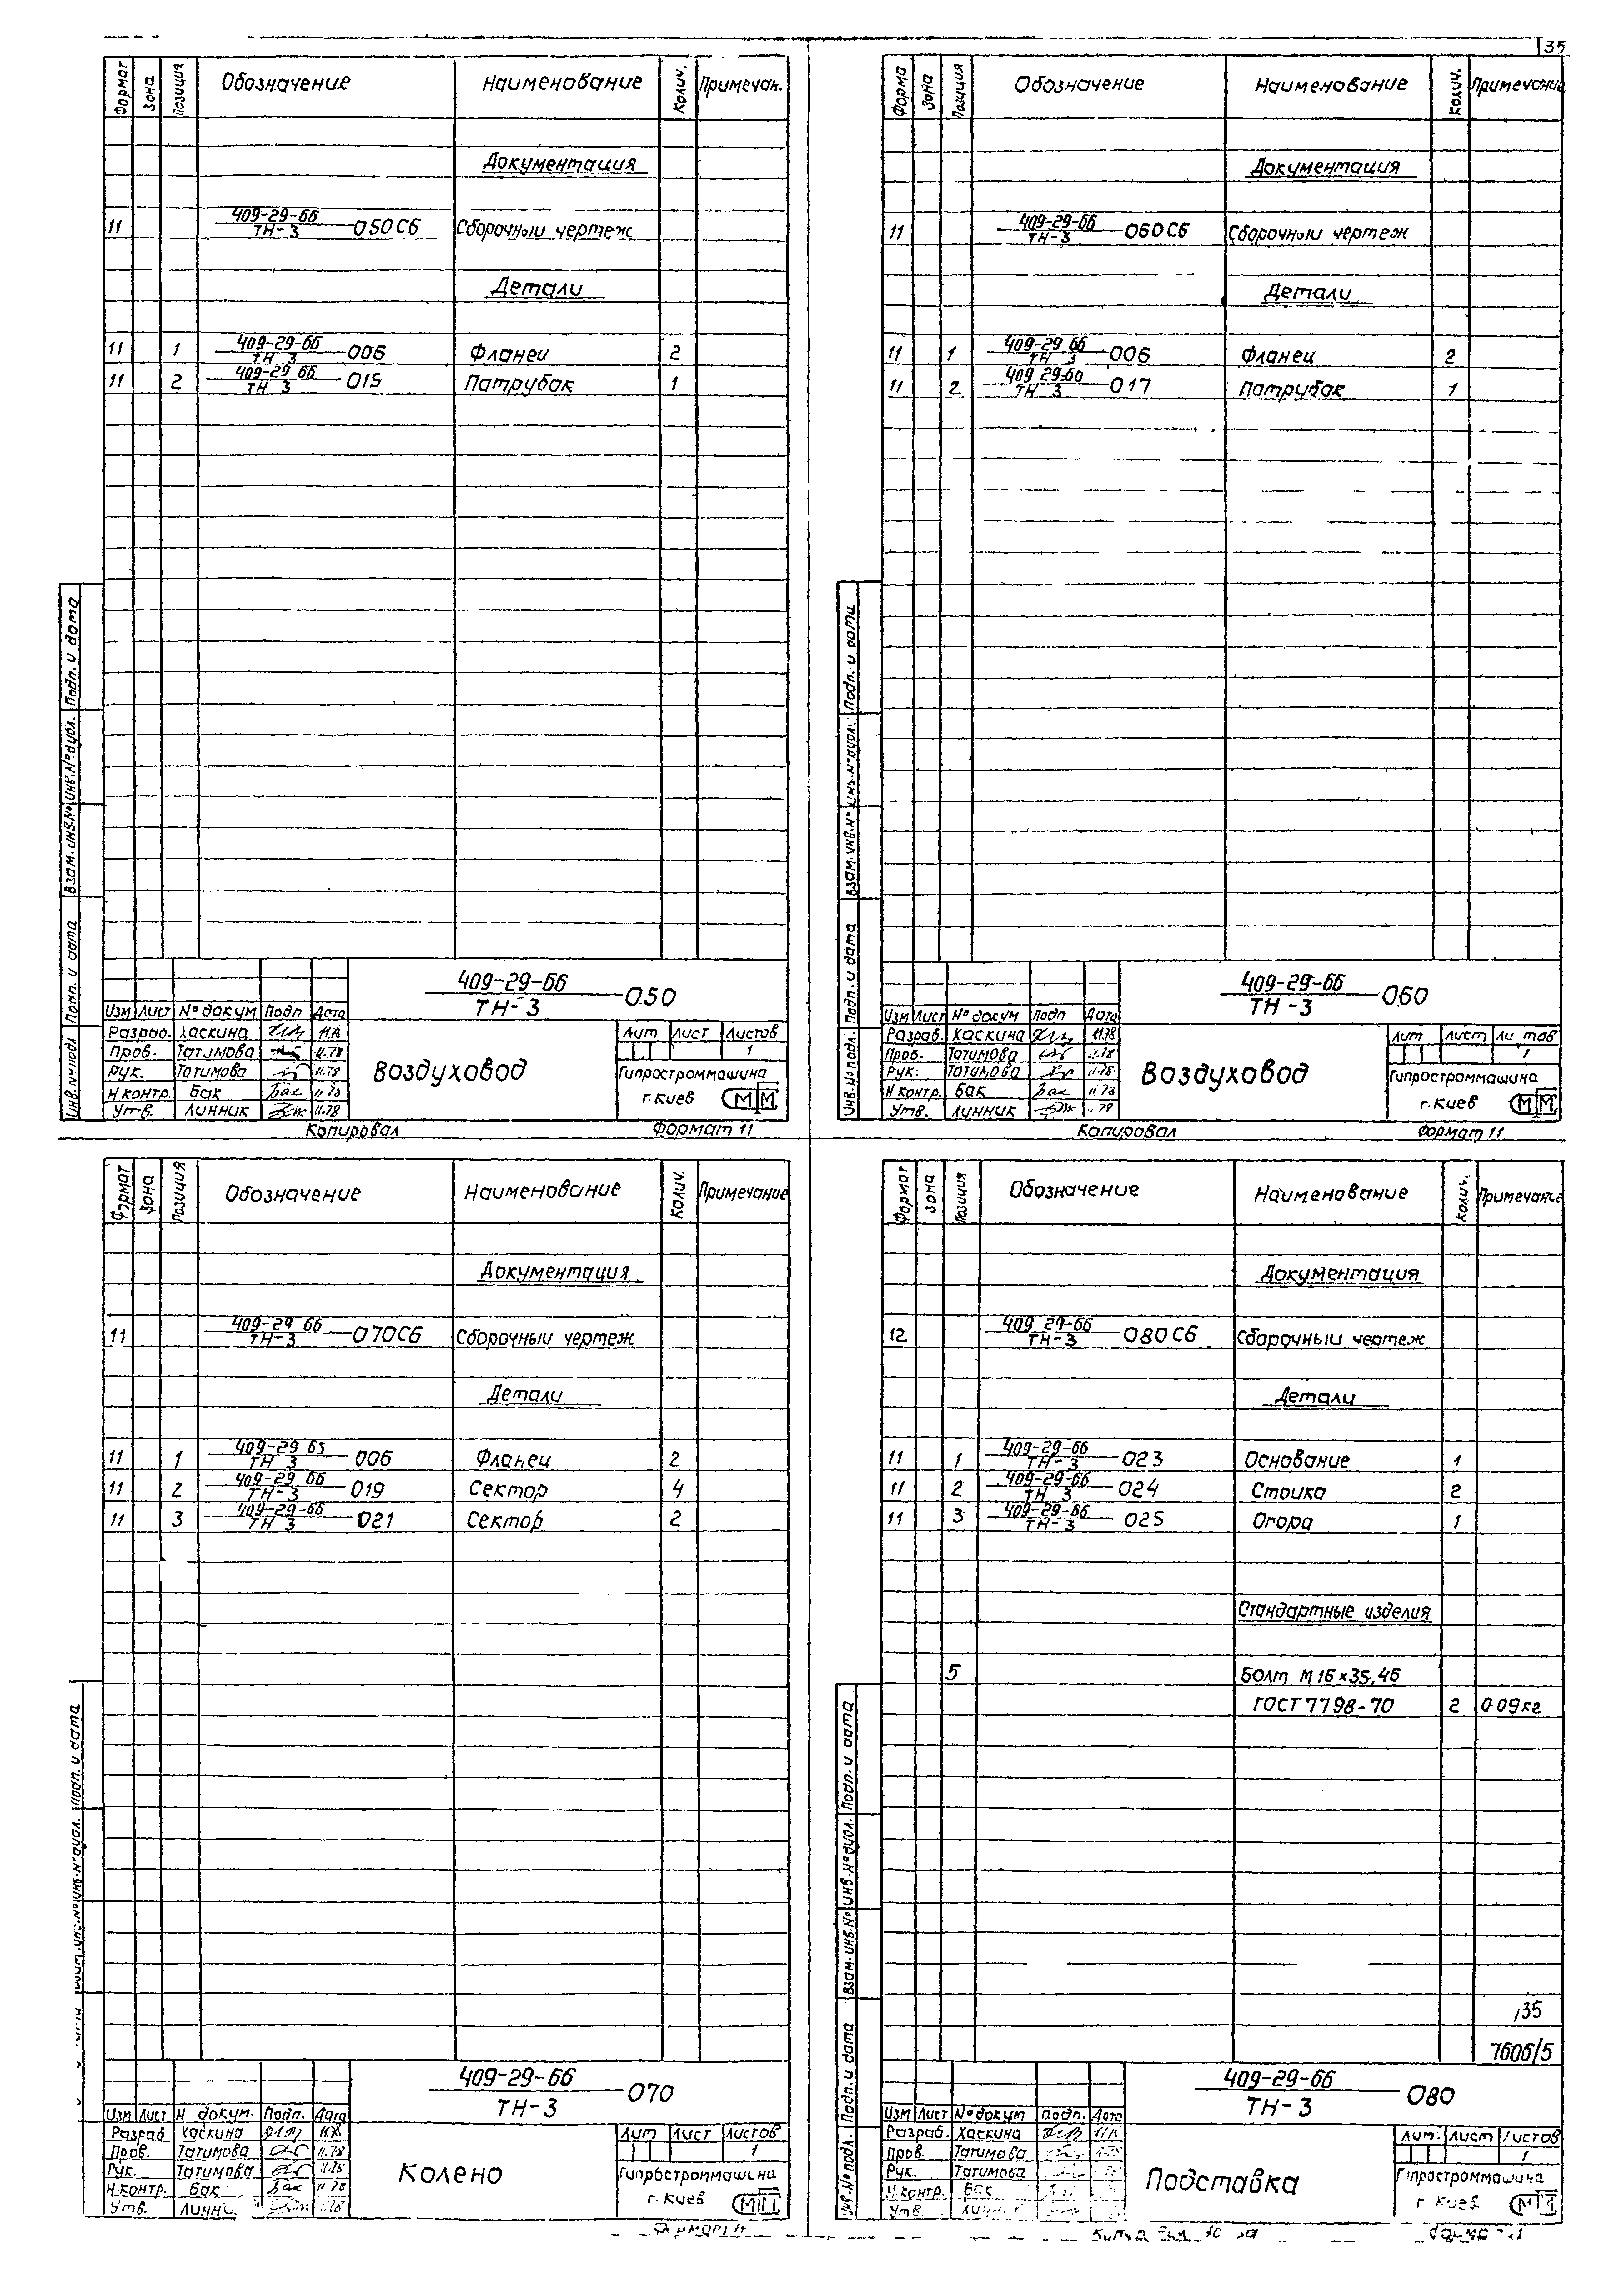 35
Формат Зона Позиция Обозначение Наименование Колич. Примечан.
Документация
11 409-29-66 / ТН-3 050СБ Сборочный чертеж
Детали
11 1 409-29-66 / ТН 3 006 Фланец 2
11 2 409-29 66 / ТН 3 015 Патрубак 1
Подп. и дата
Инв.№ дубл.
Взам.инв.№
Подп. и дата
Инв.№ подл
409-29-66 / ТН-3 050
Изм Лист № докум Подп Дата
Разраб. Хаскина 11.78
Пров. Татимова 11.78
Рук. Татимова 11.78
Н контр. Бак Бак 11 78
Утв. Линник 11.78
Воздуховод
Лит Лист Листов
1
Гипростроммашина
г. Киев
Копировал Формат 11
Форма Зона Позиция Обозначение Наименование Колич. Примечание
Документация
11 409-29-66 / ТН-3 060СБ Сборочный чертеж
Детали
11 1 409-29 66 / ТН 3 006 Фланец 2
11 2 409 29-66 / ТН 3 017 Патрубак 1
Подп. и дата
Инв.№ дубл.
Взам.инв.№
Подп. и дата
Инв.№ подл.
409-29-66 / ТН-3 060
Изм Лист № докум Подп Дата
Разраб. Хаскина 11.78
Пров. Татимова 11.78
Рук. Татимова 11.78
Н контр. Бак Бак 11 78
Утв. Линник 11.78
Воздуховод
Лит Лист Ли тов
1
Гипростроммашина
г. Киев
Копировал Формат 11
Формат Зона Позиция Обозначение Наименование Колич. Примечание
Документация
11 409-29 66 / ТН-3 070СБ Сборочный чертеж
Детали
11 1 409-29 65 / ТН 3 006 Фланец 2
11 2 409-29 66 / ТН-3 019 Сектор 4
11 3 409-29-66 / ТН 3 021 Сектор 2
Подп. и дата
Инв.№ дубл.
409-29-66 / ТН-3 070
Изм Лист N докум. Подп. Дата
Разраб Хаскина 11.78
Пров. Татимова 11.78
Рук. Татимова 11.78
Н.контр. Бак Бак 11 78
Утв. Линни
Колено
Лит Лист Листов
1
Гипростроммашина
г. Киев
Формат 11
Формат Зона Позиция Обозначение Наименование Колич. Примечание
Документация
12 409 29-66 / ТН-3 080СБ Сборочный чертеж
Детали
11 1 409-29-66 / ТН-3 023 Основание 1
11 2 409-29-66 / ТН 3 024 Стойка 2
11 3 409-29-66 / ТН-3 025 Опора 1
Стандартные изделия
5 Болт М16×35.46
ГОСТ 7798-70 2 0.09кг
35
7606/5
Подп. и дата
Инв.№ дубл.
Взам.инв.№
Подп. и дата
Инв.№ подл.
409-29-66 / ТН-3 080
Изм Лист № докум Подп. Дата
Разраб. Хаскина
Пров. Татимова
Рук. Татимова
Н.контр. Бак
Утв.
Подставка
Лит. Лист Листов
1
Гипростроммашина
г. Киев